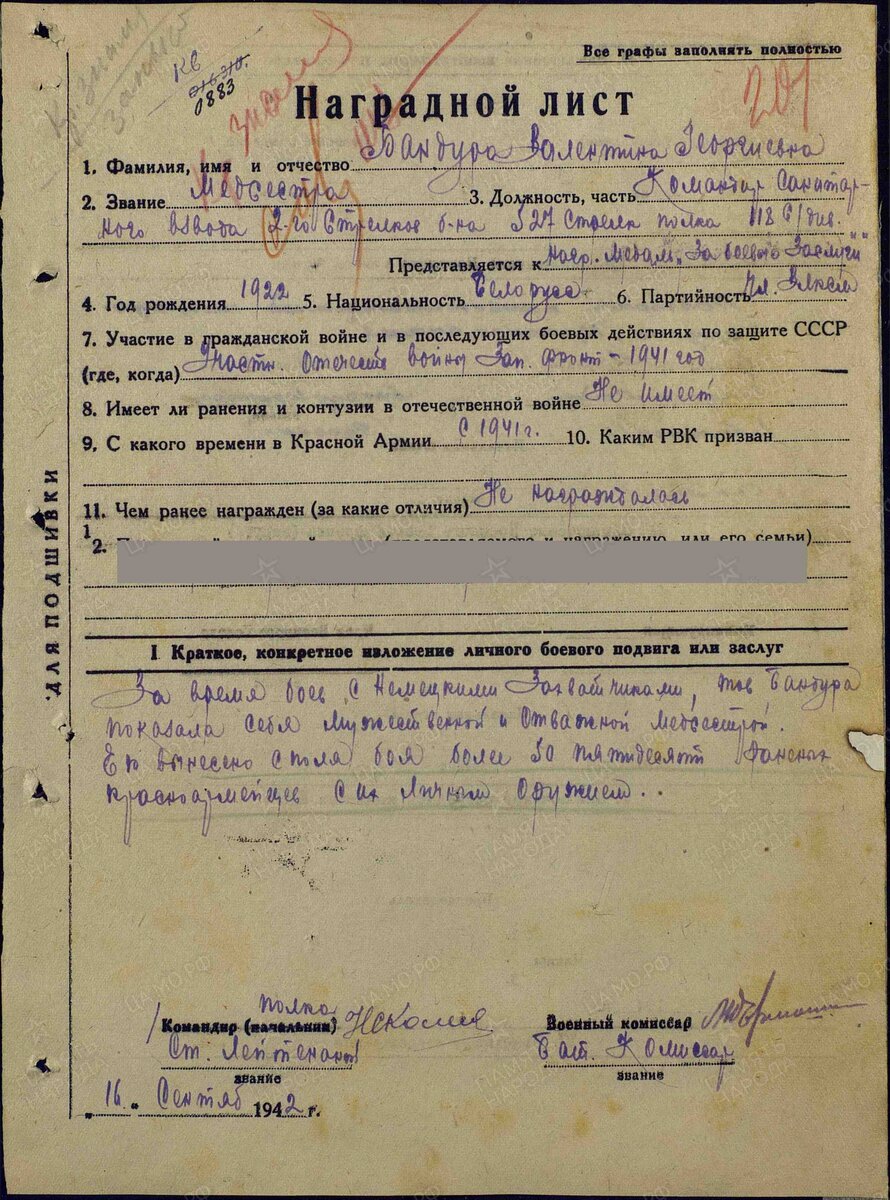 Кр. знамя
КВ
016.310.
0883
Кр. знамя
201
Все графы заполнять полностью
Наградной лист
1. Фамилия, имя и отчество Бандура Валентина Георгиевна
2. Звание Медсестра 3. Должность, часть Командир Санитар-
ного взвода 2-го Стрелков б-на 527 Стрелк полка 118 С/див.
Представляется к награ. Медали „За боевые Заслуги"
4. Год рождения 1922 5. Национальность Белорусс 6. Партийность Чл. ВЛКСМ
7. Участие в гражданской войне и в последующих боевых действиях по защите СССР
(где, когда) Участн. Отечеств войны Зап. фронт - 1941 год
8. Имеет ли ранения и контузии в отечественной войне Не имеет
9, С какого времени в Красной Армии С 1941 г. 10. Каким РВК призван
11. Чем ранее награжден (за какие отличия) Не награждалась
12. (представляемого к награждению или его семьи)
ДЛЯ ПОДШИВКИ
I Краткое, конкретное изложение личного боевого подвига или заслуг
За время боев с Немецкими Захватчиками, тов Бандура
показала себя Мужественной и Отважной медсестрой.
Ею вынесено с поля боя более 50 пятидесяти раненых
красноармейцев с их личным оружием..
полка
Командир (начальник) Военный комиссар
Ст. Лейтенант Бат. Комиссар
звание звание
„16" Сентяб 1942 г.